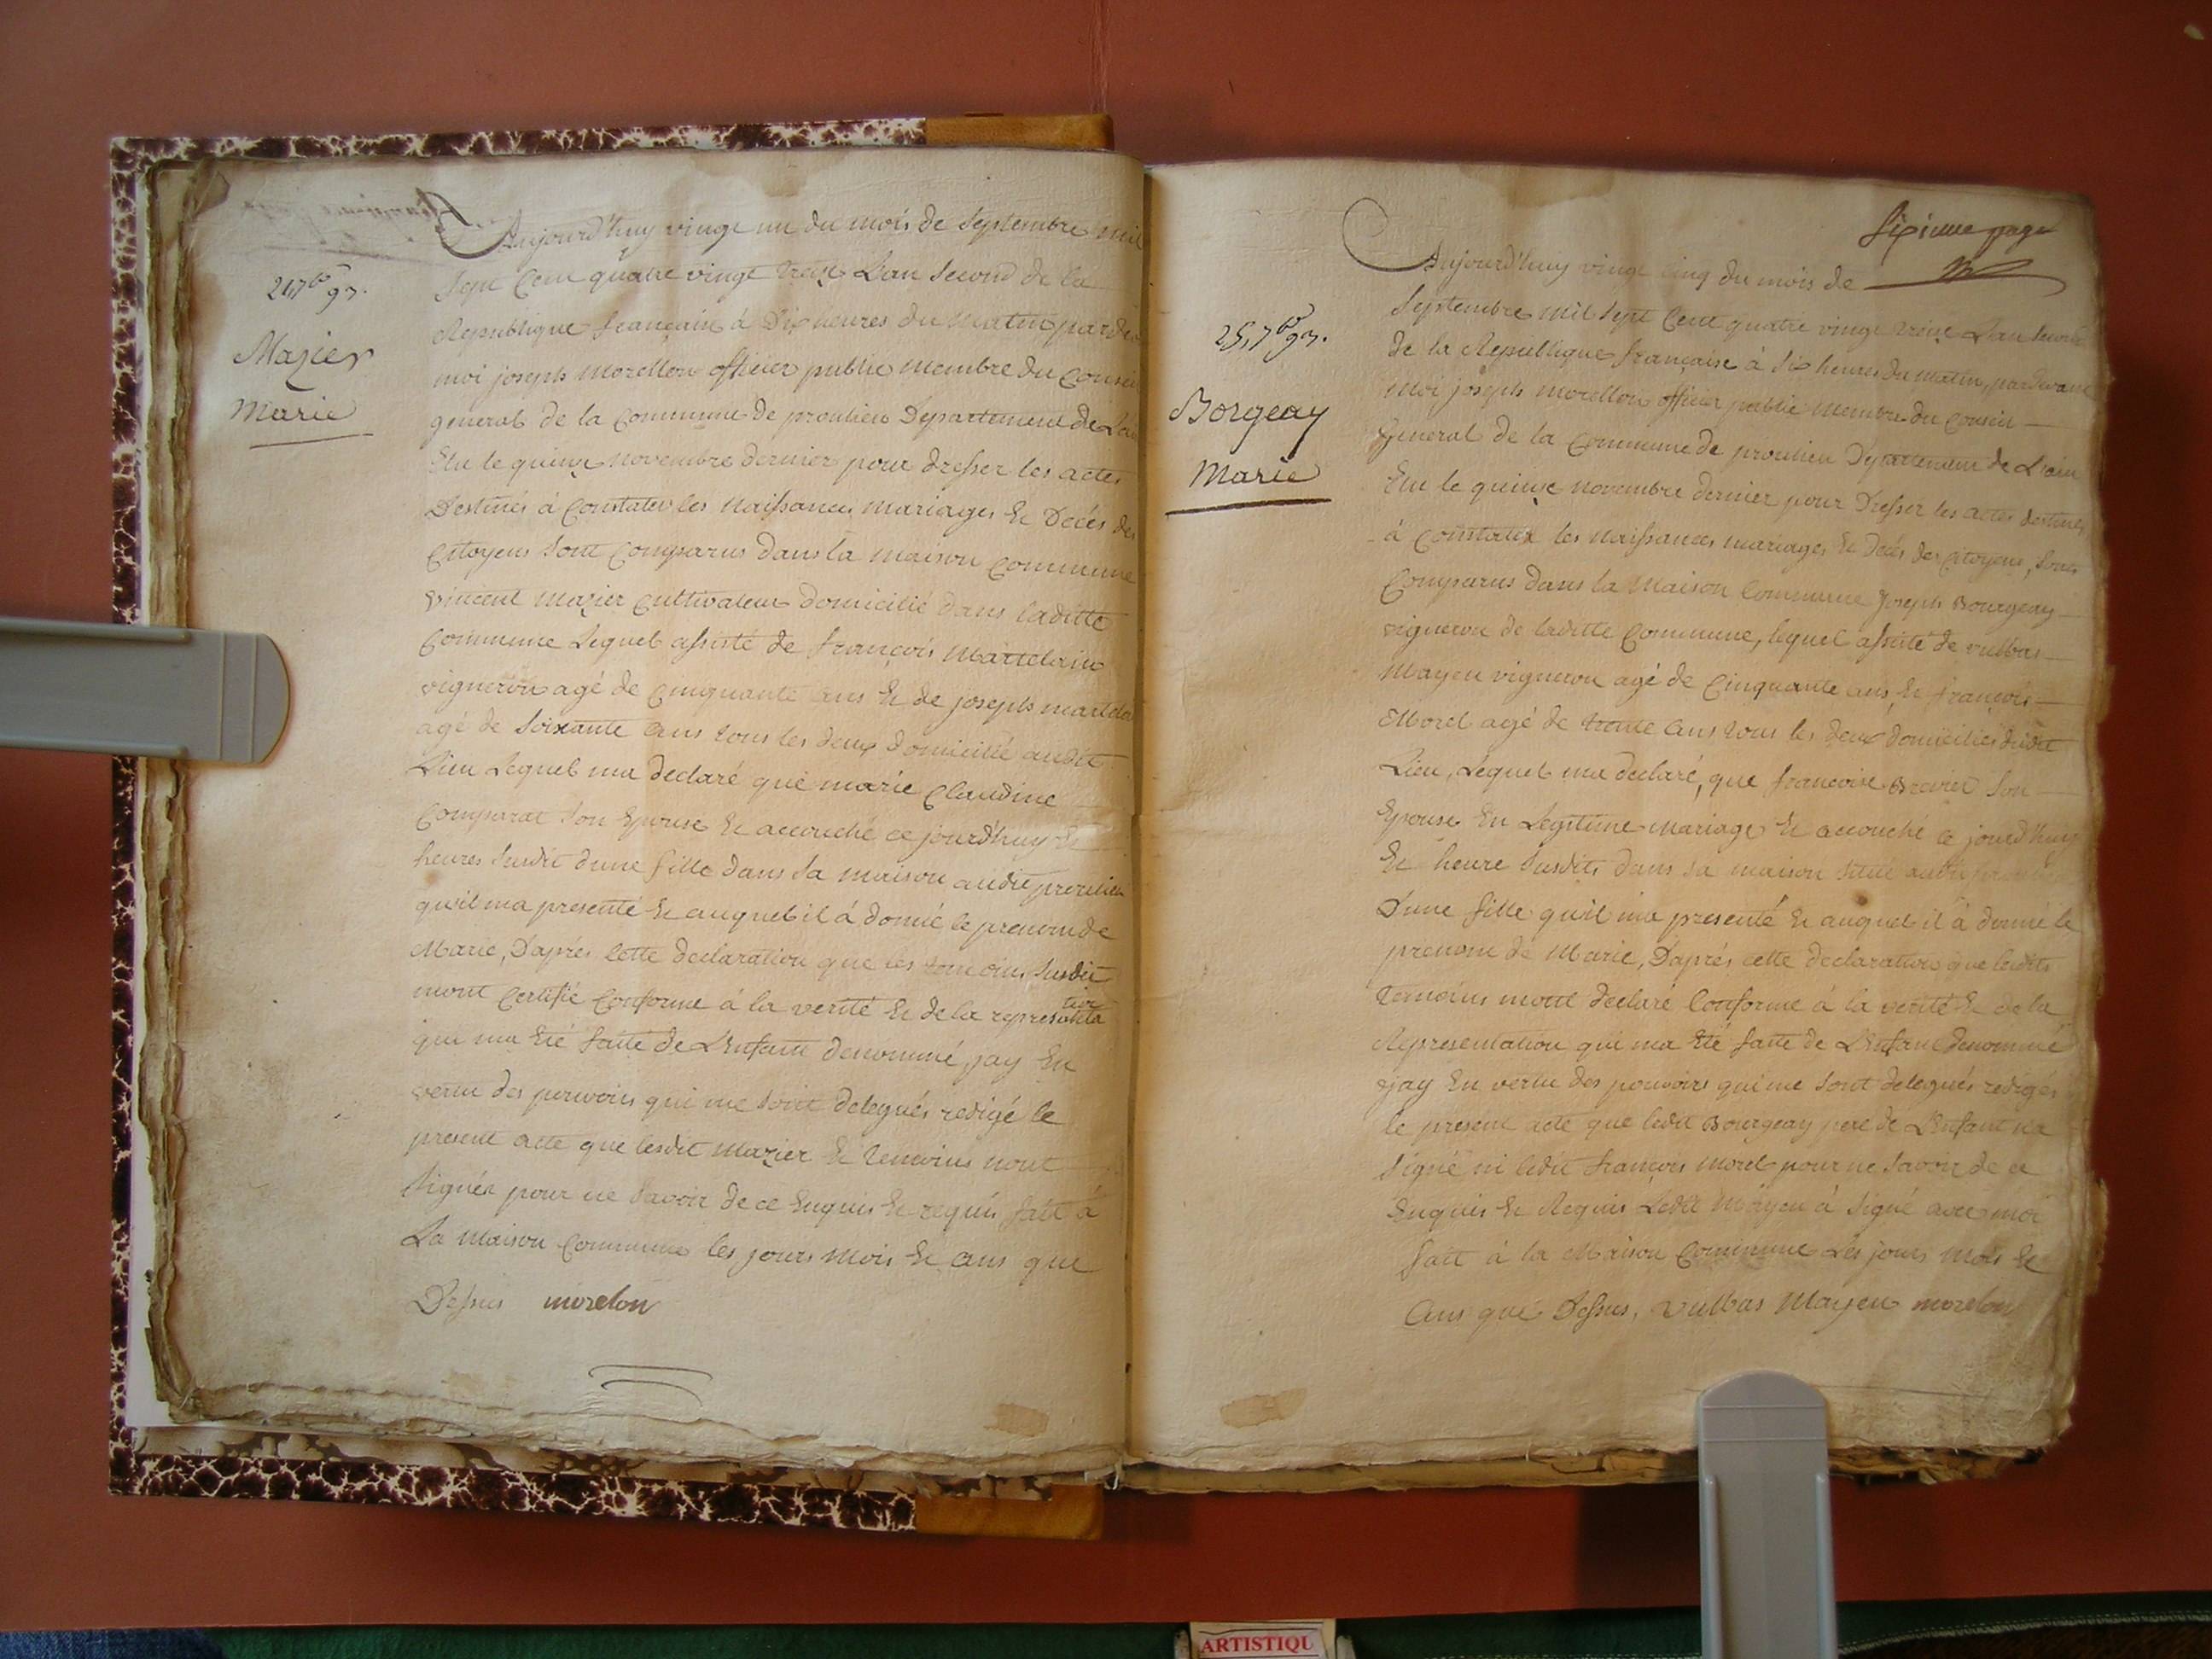 21 7bre 93.
Mazier
Marie
Aujourd'huy vingt un du mois de Septembre mil
Sept Cent quatre vingt treize Lan Second de la
Republique française à Dix heures du matin, parde
moi joseph morellon officier public membre du Conseil
general de la Commune de proulieu Departement de Lain
Elu le quinze novembre dernier pour dresser les actes
Destinés à Constater les naissances mariages Et Decés des
Citoyens Sont Comparus dans la maison Commune
vincent mazier Cultivateur domicilié dans laditte
Commune Lequel assisté de françois martelain
vigneron agé de Cinquante ans Et de joseph martela
agé de Soixante ans tous les deux domicilié audit
Lieu Lequel ma declaré que marie Claudine
Comparat Son Epouse Et accouché ce jourd'huy Et
heures Susdit dune fille dans Sa maison audit proulieu
qu'il ma presenté Et auquel il á donné le prenom de
Marie, D'aprés Cette declaration que les temoins Susdit
mont Certifié Conforme à la verité Et de la representation
qui ma Eté faitte de L'Enfant denommé, jay En
vertu des pouvoirs qui me Sont delegués redigé le
present acte que lesdit Mazier Et temoins nont
Signés pour ne Savoir de ce Enquis Et requis fait á
La Maison Commune les jours mois Et ans que
Dessus morelon
Sixieme page
25, 7bre 93.
Borgeay
Marie
Aujourd'huy vingt Cinq du mois de
Septembre mil Sept Cent quatre vingt treize Lan Second
de la Republique française à Six heures du matin, pardevant
Moi joseph morellon officier public membre du Conseil
General de la Commune de proulieu Departement de L'ain
Elu le quinze novembre dernier pour Dresser les actes destinés
à Constater les naissances mariages Et Decés des Citoyens, Sont
Comparus dans la Maison Commune Joseph Bourgeay
vigneron de laditte Commune, lequel assisté de vulbas
Mayeu vigneron agé de Cinquante ans, Et françois
Morel agé de trente ans tous les deux domiciliés dudit
Lieu, Lequel ma declaré, que francoise Brevet Son
Epouse En Legitime mariage Et accouché ce jourd'huy
Et heure Susdits dans sa maison Situé audit
D'une fille qu'il ma presenté Et auquel il á donné le
prenom de Marie, D'aprés cette declaration que lesdits
temoins mont declaré Conforme à la verité Et de la
Representation qui ma Eté faite de L'Enfant denommé
jay En vertu des pouvoirs qui me Sont delegués redigés
le present acte que ledit Bourgeay pere de L'Enfant na
Signé ni ledit françois morel pour ne Savoir de ce
Enquis Et Requis Ledit Mayeu à Signé avec moi
fait à la Maison Commune Les jours mois Et
Ans que Dessus, vulbas Mayeu morelon
ARTISTIQU